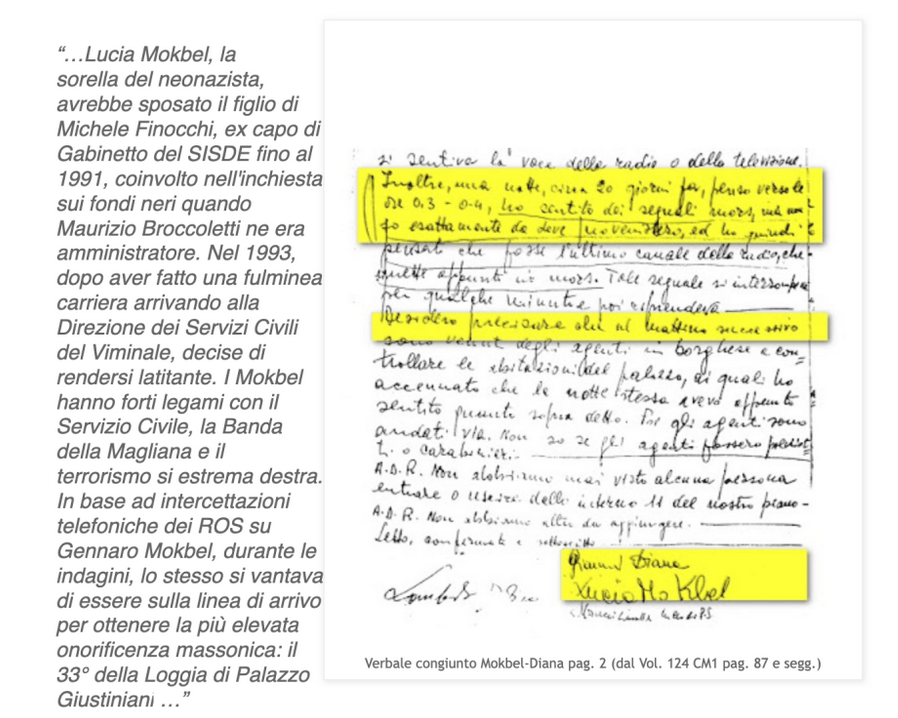 “…Lucia Mokbel, la
sorella del neonazista,
avrebbe sposato il figlio di
Michele Finocchi, ex capo di
Gabinetto del SISDE fino al
1991, coinvolto nell'inchiesta
sui fondi neri quando
Maurizio Broccoletti ne era
amministratore. Nel 1993,
dopo aver fatto una fulminea
carriera arrivando alla
Direzione dei Servizi Civili
del Viminale, decise di
rendersi latitante. I Mokbel
hanno forti legami con il
Servizio Civile, la Banda
della Magliana e il
terrorismo si estrema destra.
In base ad intercettazioni
telefoniche dei ROS su
Gennaro Mokbel, durante le
indagini, lo stesso si vantava
di essere sulla linea di arrivo
per ottenere la più elevata
onorificenza massonica: il
33° della Loggia di Palazzo
Giustiniani …”
si sentiva la voce della radio o della televisione.
Inoltre, una notte, circa 20 giorni fa, penso verso le
ore 03 - 04, ho sentito dei segnali mors,
esattamente da dove ed ho quindi
pensato che fosse l'ultimo canale della radio, che
appunti in mors. Tale segnale si
per qualche minuti e poi riprendeva
Desidero precisare che al mattino successivo
sono venuti degli agenti in borghese a con=
trollare le abitazioni del palazzo, ai quali ho
accennato che la notte stessa avevo appunto
sentito quanto sopra detto. Poi gli agenti sono
andati via. Non so se gli agenti fossero
o carabinieri.
A.D.R. Non abbiamo mai visto alcuna persona
entrare o uscire dallo interno 11 del nostro piano.
A.D.R. Non abbiamo altro da aggiungere.
Letto, confermato e sottoscritto
Gianni Diana
Lucia Mokbel
Verbale congiunto Mokbel-Diana pag. 2 (dal Vol. 124 CM1 pag. 87 e segg.)